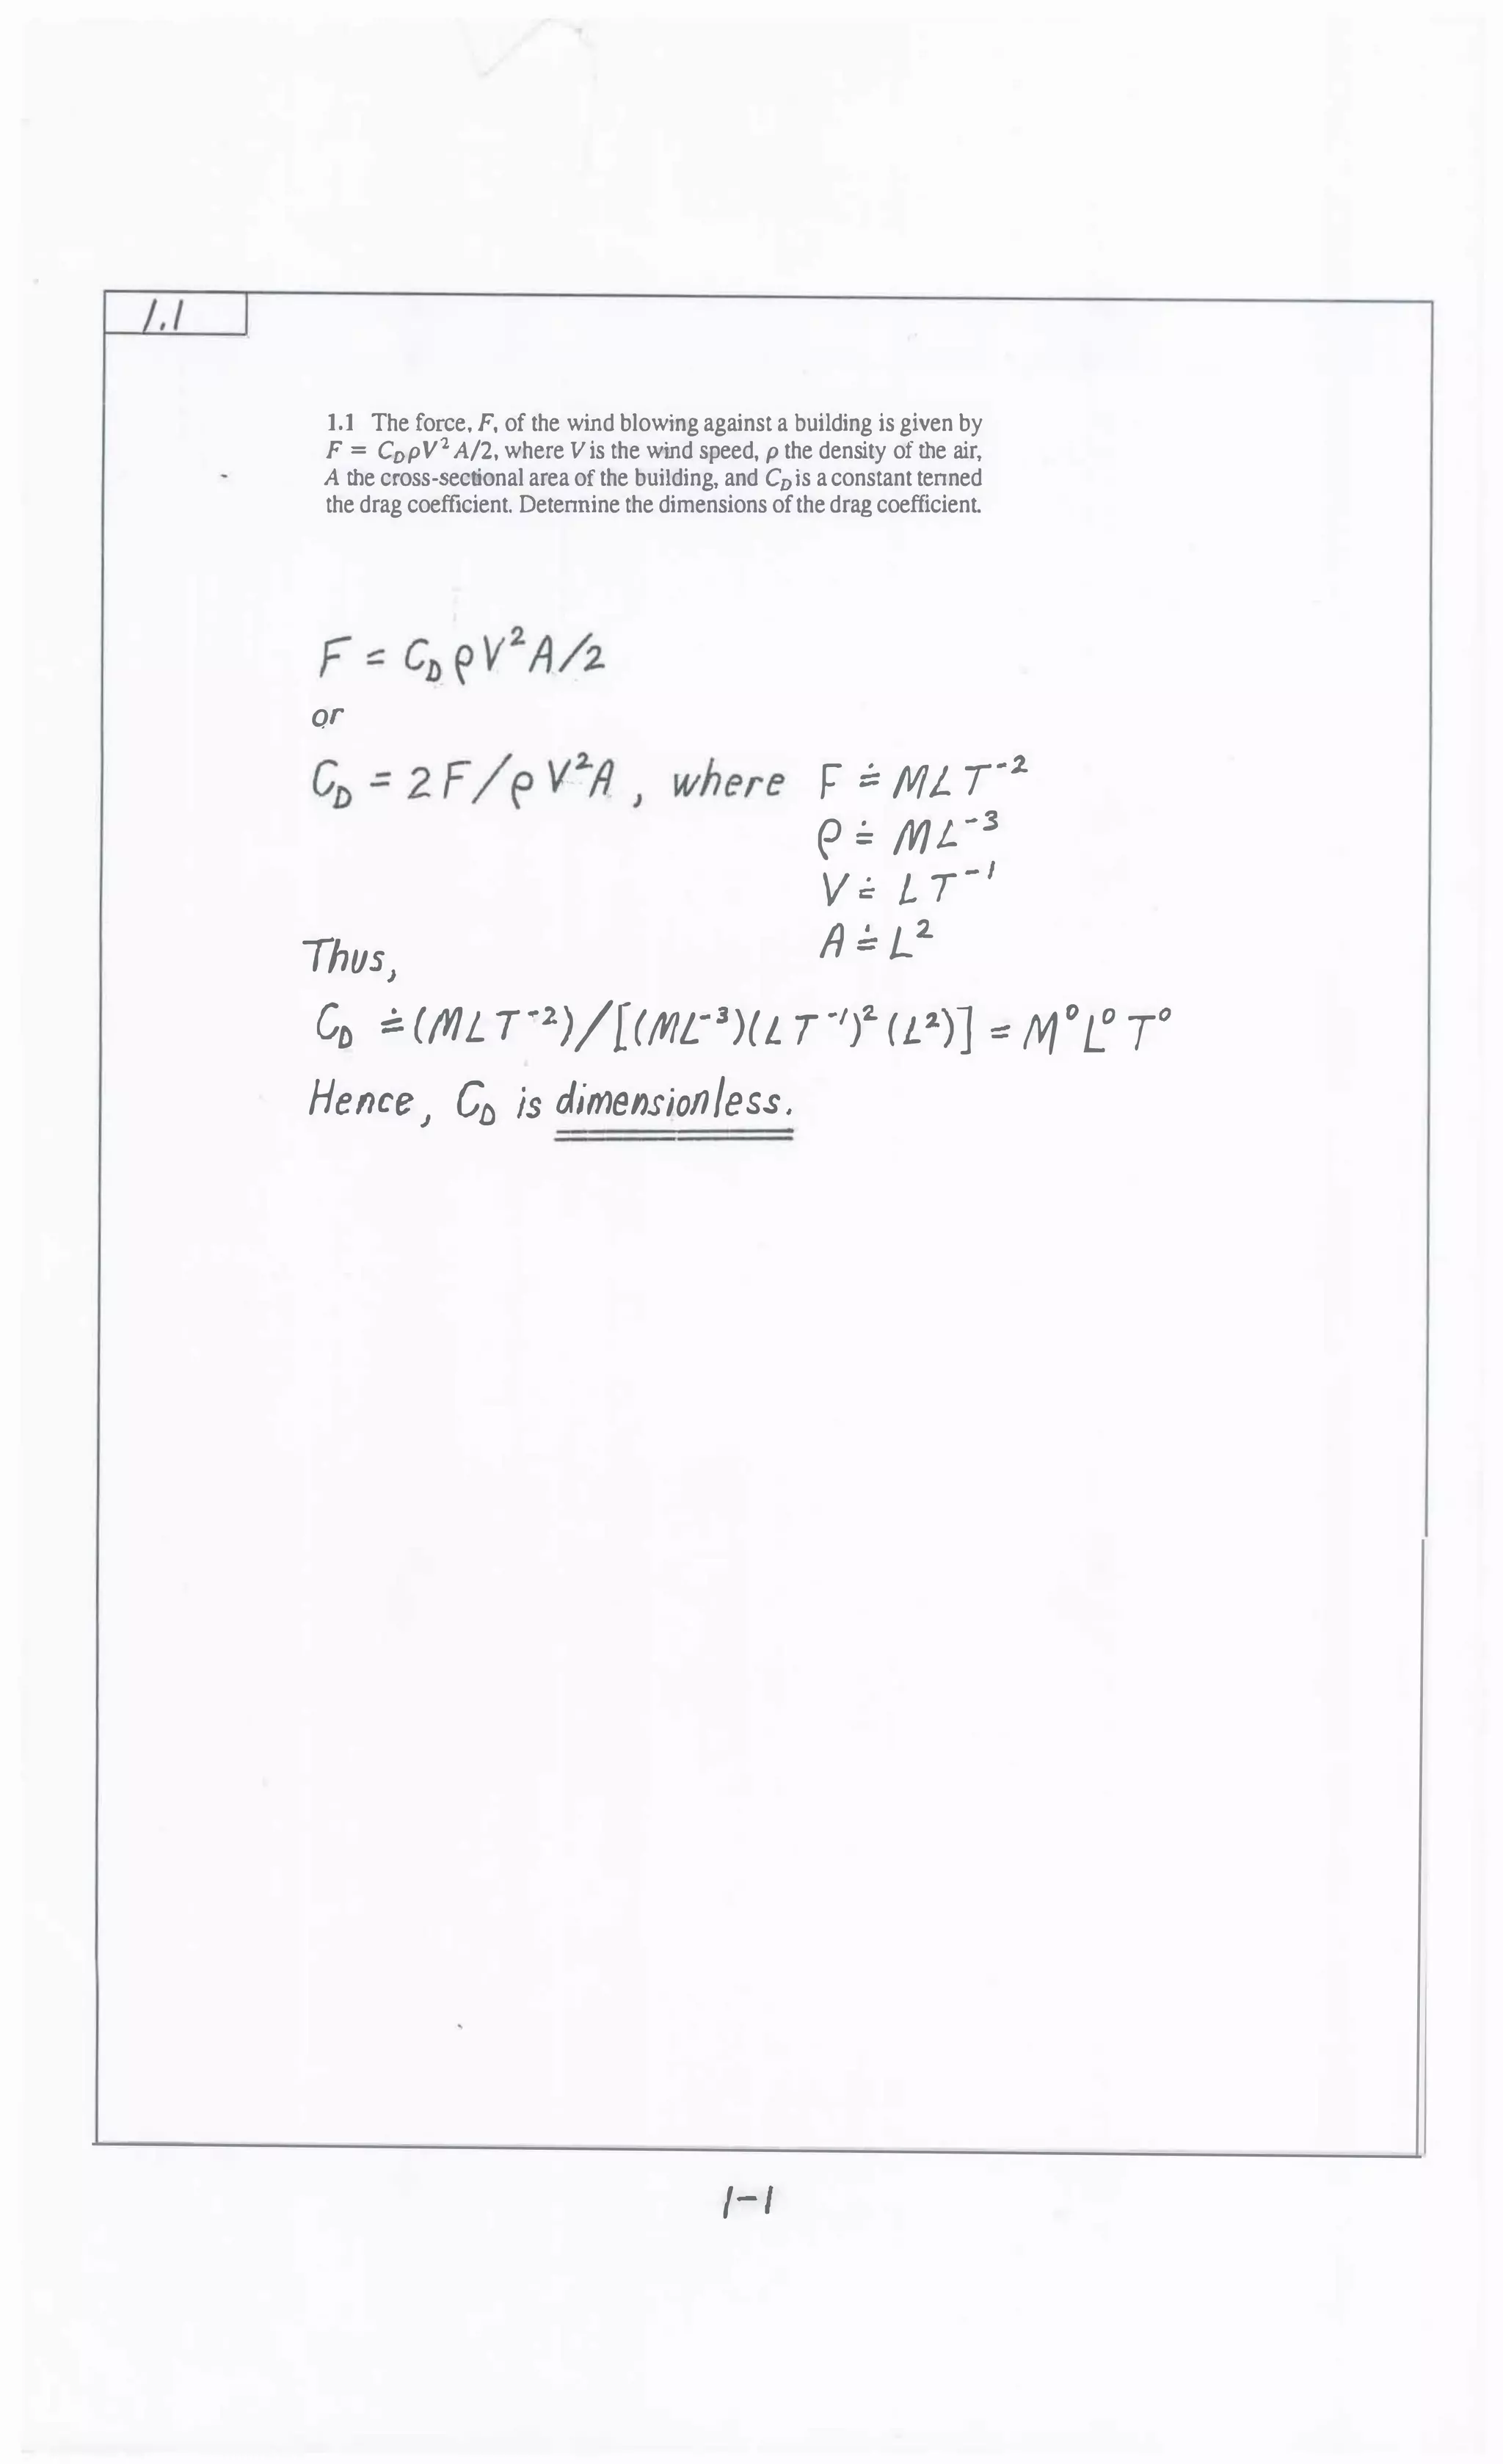 1.1
1.1 The force, F, of the wind blowing against a building is given by
F = C_DρV² A/2, where V is the wind speed, ρ the density of the air,
A the cross-sectional area of the building, and C_D is a constant tenned
the drag coefficient. Detennine the dimensions of the drag coefficient.
F = C_D ρV²A/2
or
C_D = 2F/ρV²A, where F ≐ MLT⁻²
ρ ≐ ML⁻³
V ≐ LT⁻¹
A ≐ L²
Thus,
C_D ≐ (MLT⁻²)/[(ML⁻³)(LT⁻¹)²(L²)] = M⁰L⁰T⁰
Hence, C_D is dimensionless.
1-1